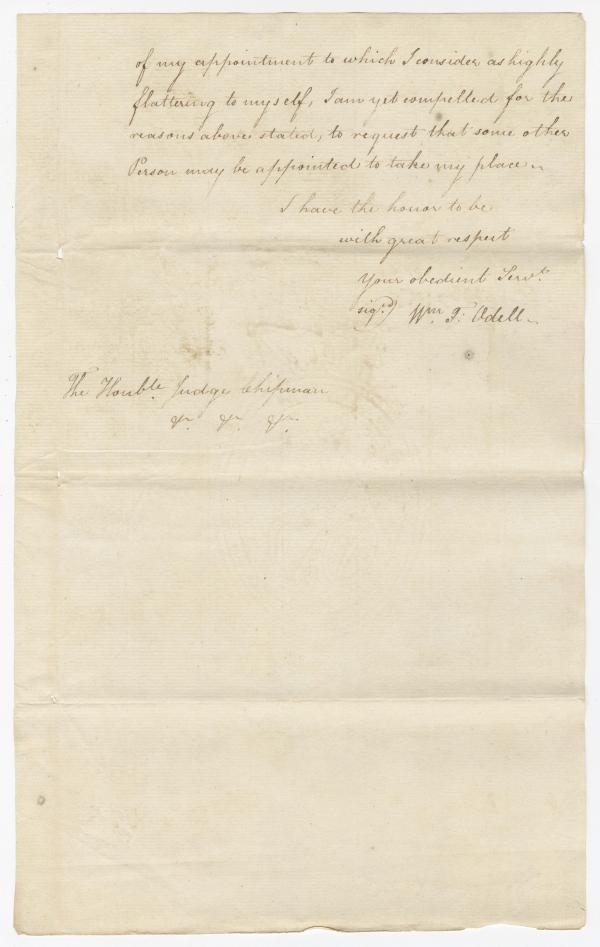 of my appointment to which I consider as highly
flattering to myself, I am yet compelled for the
reasons above stated, to request that some other
Person may be appointed to take my place.
I have the honor to be
with great respect
Your obedient Servt.
sigd.) Wm. F. Odell.
The Honble. Judge Chipman
&c. &c. &c.